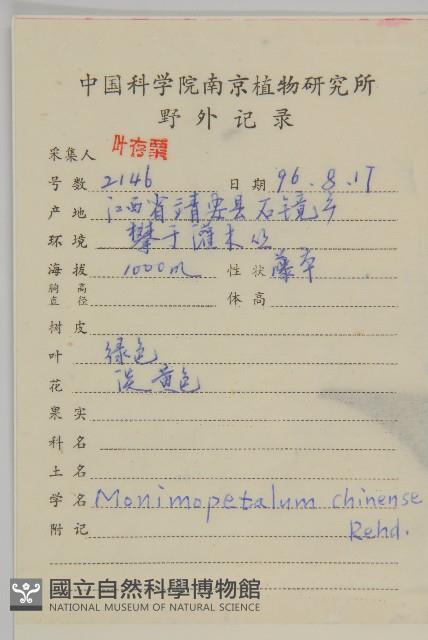 中国科学院南京植物研究所
野外记录
采集人 叶存粟
号数 2146 日期 96.8.17
产地 江西省靖安县石镜乡
环境 攀于灌木丛
海拔 1000m 性状 藤本
胸高直径 体高
树皮
叶 绿色
花 淡黄色
果实
科名
土名
学名 Monimopetalum chinense
附记 Rehd.
國立自然科學博物館
NATIONAL MUSEUM OF NATURAL SCIENCE